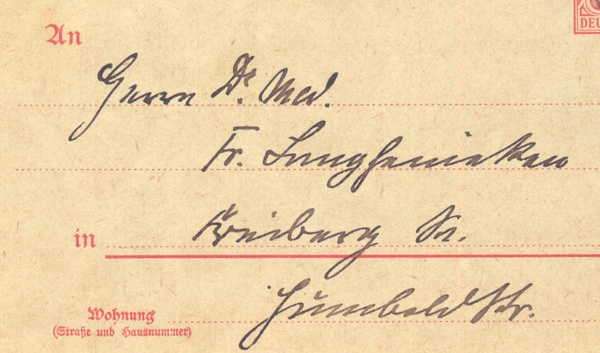 DEU
An
Herrn Dr. Med.
Fr. Langheineken
in Freiberg Sa.
Wohnung
(Straße und Hausnummer)
Humboldtstr.